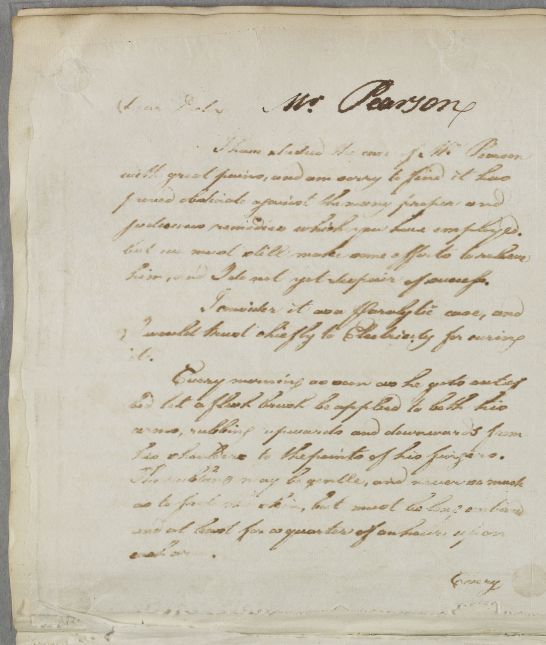 Dear Sir Mr Pearson
I have studied the case of Mr Pearson
with great pains, and am sorry to find it has
proved obstinate against the many proper and
judicious remedies which you have employed.
but we must still make some efforts to relieve
him, and I do not yet despair of success.
I consider it as a Paralytic case, and
I would trust chiefly to Electricity for curing
it.
Every morning as soon as he gets out of
bed let a flesh brush be applied to both his
arms, rubbing upwards and downwards from
his shoulders to the points of his fingers.
The rubbing may be gentle, and never so much
as to fret the skin, but must be long continued
and at least for a quarter of an hour upon
each arm.
Every